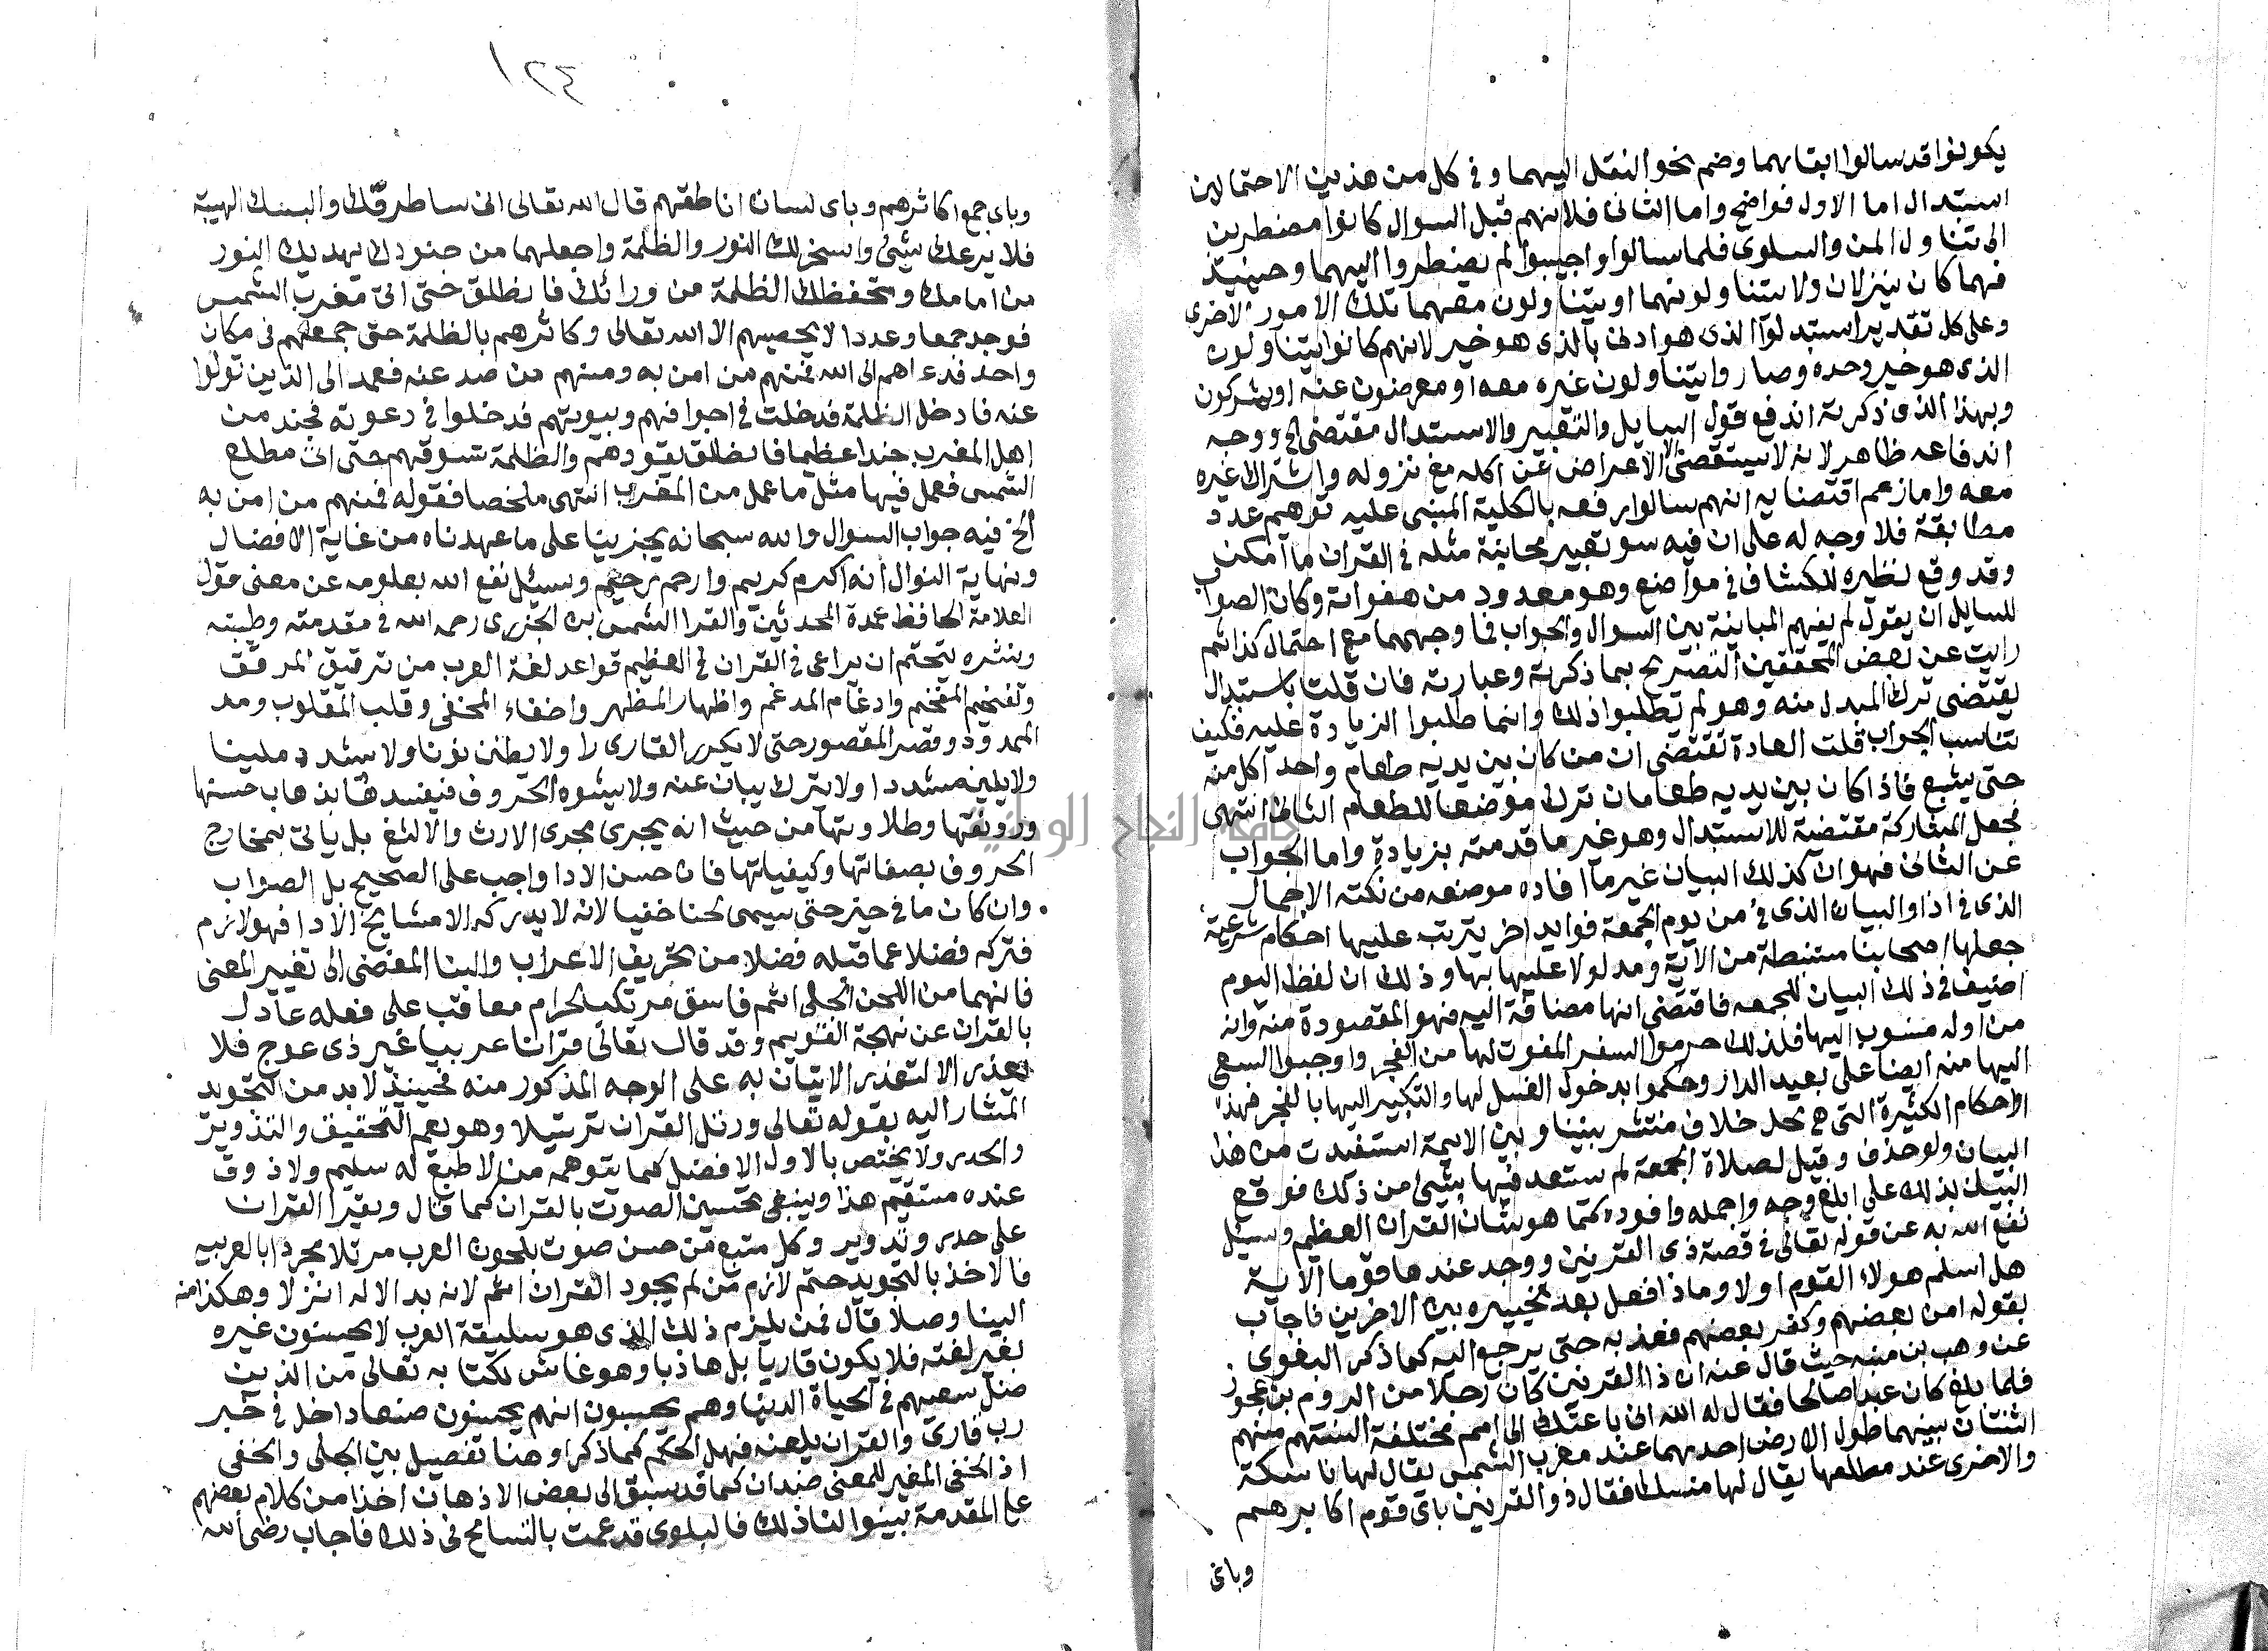 يكونوا قد سالوا ابقابهما وضم نحو النقل اليهما وفى كل من هذين الاحتمالين
استبدال اما الاول فواضح واما الثانى فلانهم قبل السوال كانوا مضطرين
الى تناول المن والسلوى فلما سالوا واجيبوا لم يضطروا اليهما وحينئذ
فهما كان ينزلان ولا يتناولونهما او يتناولون معهما تلك الامور الاخرى
وعلى كل تقدير استبدلوا الذى هو ادنى بالذى هو خير لانهم كانوا يتناولون
الذى هو خير وحده وصاروا يتناولون غيره معه او معرضون عنه او يشركون
وبهذا الذى ذكرته اندفع قول السايل والتعبير والاستبدال مقتضى الخ ووجه
اندفاعه ظاهر لانه لا يستقضى الاعراض عن اكله مع نزوله واشتراك غيره
معه واما زعم اقتضايه انهم سالوا رفعه بالكلية المبنى عليه توهم عدم
مطابقة فلا وجه له على ان فيه سو تعبير مجانبة مثله فى القران ما امكن
وقد وقع نظيره للكشاف فى مواضع وهو معدود من هفواته وكان الصواب
للسايل ان يقول لم يفهم المباينة بين السوال والجواب فما وجههما مع احتمال كذا ثم
رايت عن بعض المحققين التصريح بما ذكرته وعبارته فان قلت باستبدال
يقتضى ترك المبدل منه وهو لم يطلبوا ذلك وانما طلبوا الزيادة عليه فكيف
تناسب الجواب قلت العادة تقتضى ان من كان بين يديه طعام واحد اكل منه
حتى يشبع فاذا كان بين يديه طعامان ترك موضعا للطعام الثانى انتهى
فجعل المشاركة مقتضية للاستبدال وهو غير ما قدمته بزيادة واما الجواب
عن الثانى فهو ان كذلك البيان غير ما افاده موضعه من نكتة الاجمال
الذى فى اذا والبيان الذى فى من يوم الجمعة فوايد اخر يترتب عليها احكام شرعية
جعلها اصحابنا مستنبطة من الاية ومدلولا عليها بها وذلك ان لفظ اليوم
اضيف فى ذلك البيان للجمعه فاقتضى انها مضافة اليه فهو المقصودة منه وانه
من اوله منسوب اليها فلذلك حرموا السفر المفوت لها من الفجر واوجبوا السعى
اليها منه ايضا على بعيد الدار وحكموا بدخول الغسل لها والتبكير اليها بالفجر فهذه
الاحكام الكثيرة التى هى محل خلاف منتشر بيننا وبين الايمة استفيدت من هذا
البيان ولو حذف وقيل لصلاة الجمعة لم ستعد فيها بشىء من ذلك فوقع
البيان بذلك على ابلغ وجه واجمله وافوده كما هو شان القران العظيم وسئل
نفع الله به عن قوله تعالى فى قصة ذى القرنين ووجد عندها قوما الاية
هل اسلم هولاء القوم اولا وماذا فعل بعد تخييره بين الاخرين فاجاب
بقوله امن بعضهم وكفر بعضهم فعذبه حتى يرجع اليه كما ذكر البغوى
عن وهب بن منبه حيث قال عنه ان ذا القرنين كان رجلا من الروم بن عجوز
فلما بلغ كان عبدا صالحا فقال له الله انى باعثك الى امم مختلفة السنتهم منهم
اثنتان بينهما طول الارض احدهما عند مغرب الشمس يقال لها ناسكة
والاخرى عند مطلعها يقال لها منسك فقال ذو القرنين باى قوم اكابرهم
وباى
١٢٤
وباى جمع اكاثرهم وباى لسان اناطقهم قال الله تعالى انى ساطوقك والبسك الهيبة
فلا يرعك شىء واسخر لك النور والظلمة واجعلهما من جنودك يهديك النور
من امامك وتحفظك الظلمة من ورائك فانطلق حتى اتى مغرب الشمس
فوجد جمعا وعددا لا يحصيهم الا الله تعالى وكاثرهم بالظلمة حتى جمعهم فى مكان
واحد فدعاهم الى الله فمنهم من امن به ومنهم من صد عنه فعمد الى الذين تولوا
عنه فادخل الظلمة فدخلت فى اجوافهم وبيوتهم فدخلوا فى دعوته فجند من
اهل المغرب جندا عظيما فانطلق يقودهم والظلمة تسوقهم حتى اتى مطلع
الشمس فعمل فيها مثل ما عمل من المغرب انتهى ملخصا فقوله فمنهم من امن به
الخ فيه جواب السوال والله سبحانه يجزينا على ما عهدناه من غاية الافضال
ونهاية النوال انه اكرم كريم وارحم رحيم وسئل نفع الله بعلومه عن معنى قول
العلامة الحافظ عمدة المحدثين والقرا الشمس بن الجزرى رحمه الله فى مقدمته وطيبته
ونشره يتحتم ان يراعى فى القران فى العظيم قواعد لغة العرب من ترقيق المرقق
وتفخيم المفخم وادغام المدغم واظهار المظهر واخفاء المخفى وقلب المقلوب ومد
الممدود وقصر المقصور حتى لا يكرر القارى را ولا يطنن نونا ولا يشدد ملينا
ولا يلين مشددا ولا يترك بيان عنه ولا يشوه الحروف فيفسدها بذهاب حسنها
ورونقها وطلاوتها من حيث انه يجرى مجرى الارث والالثغ بل ياتى بمخارج
الحروف بصفاتها وكيفياتها فان حسن الادا واجب على الصحيح بل الصواب
وان كان ما فى حيز حتى سيمى لحنا خفيا لانه لا يدركه الا مشايخ الادا فهو لازم
فتركه فضلا عما قبله فضلا من تحريف الاعراب والبنا المفضى الى تغيير المعنى
فانهما من اللحن الجلى اثم فاسق مرتكب لحرام معاقب على فعله عادل
بالقران عن نهجة القويم وقد قال تعالى قرانا عربيا غير ذى عوج فلا
يعذر الا لتعذر الاتيان به على الوجه المذكور منه فحينئذ لابد من التجويد
المشار اليه بقوله تعالى ورتل القران ترتيلا وهو يعم التحقيق والتدوير
والحدر ولا يختص بالاول الافضل كما يتوهمه من لا طبع له سليم ولا ذوق
عنده مستقيم هذا وينبغى تحسين الصوت بالقران كما قال ويقرا القران
على حدر وتدوير وكل متبع من حسن صوت بلحون العرب مرتلا مجودا بالعربيه
فالاخذ بالتجويد حتم لازم من لم يجود القران اثم لانه به الاله انزلا وهكذا منه
الينا وصلا قال فمن يلزم ذلك الذى هو سليقة العرب لا يحسنون غيره
بغير لغته فلا يكون قاريا بل هاذيا وهو غاش لكتابه تعالى من الذين
ضل سعيهم فى الحياة الدنيا وهم يحسبون انهم يحسنون صنعا داخل فى خبر
رب قارى والقران يلعنه فهل الحكم كما ذكر او هنا تفصيل بين الجلى والخفى
اذ الخفى المغير للمعنى ضدان كما قد سبق الى بعض الاذهان اخذا من كلام بعضهم
على المقدمة بينوا لنا ذلك فالبلوى قد عمت بالتسامح فى ذلك فاجاب رضى الله
جامعة النجاح الوطنية